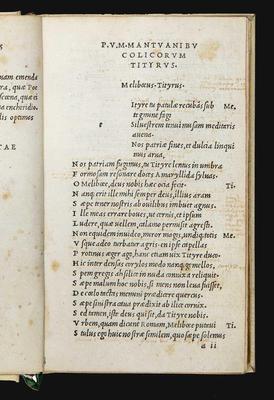 P. V. M. MANTVANI BV
COLICORVM
TITYRVS.
Melibœus. Tityrus.
Ityre tu patulæ recubans sub Me.
tegmine fagi
t Siluestrem tenui musam meditaris
auena.
Nos patriæ fines, et dulcia linqui
mus arua,
Nos patriam fugimus, tu Tityre lentus in umbra
Formosam resonare doces Amaryllida syluas.
O Melibœe, deus nobis hæc ocia fecit. Ti.
Nanq. erit ille mihi semper deus, illius aram
Sæpe tener nostris ab ouilibus imbuet agnus.
Ille meas errare boues, ut cernis, et ipsum
Ludere, quæ uellem, calamo permisit agresti.
Non equidem inuideo, miror magis, undiq; totis Me.
Vsque adeo turbatur agris. en ipse capellas
Protinus æger ago, hanc etiam uix Tityre duco.
Hic inter densas corylos modo nanq; gemellos,
Spem gregis ah silice in nuda connixa reliquit.
Sæpe malum hoc nobis, si mens non læua fuisset,
De cœlo tactas memini prædicere quercus.
Sæpe sinistra caua prædixit ab ilice cornix.
Sed tamen, iste deus qui sit, da Tityre nobis.
Vrbem, quam dicunt Romam, Melibœe putaui Ti.
Stultus ego huic nostræ similem, quo sæpe solemus
a ii